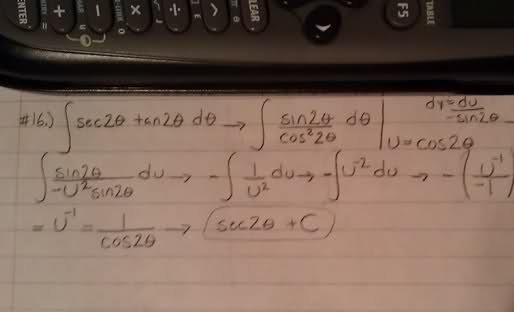 ENTER + − × ÷ ^ CLEAR F5 TABLE
dy = du/-sin2θ
#16.) ∫ sec2θ tan2θ dθ → ∫ sin2θ/cos²2θ dθ | u = cos2θ
∫ sin2θ/-u² sin2θ du → -∫ 1/u² du → -∫ u⁻² du → -(u⁻¹/-1)
= u⁻¹ = 1/cos2θ → sec2θ + C